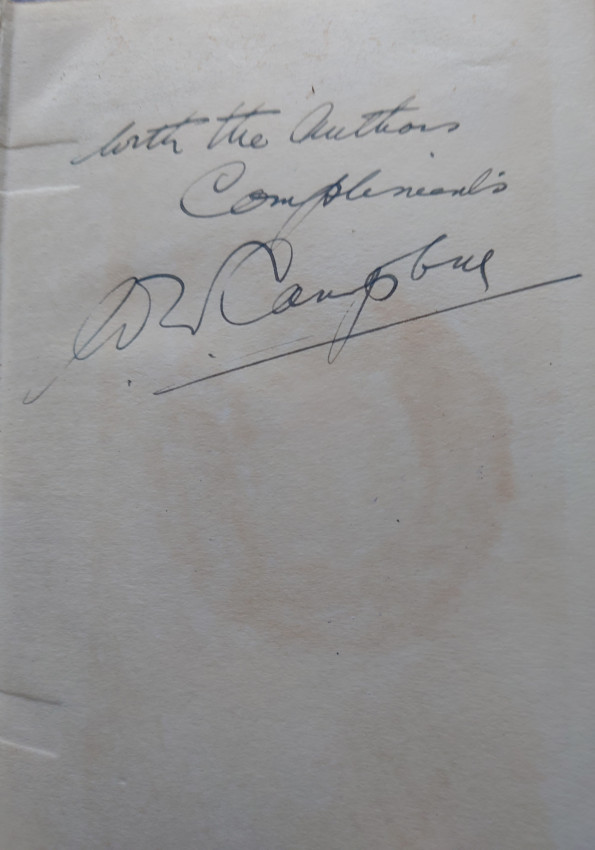 With the Authors
Compliments
Campbell